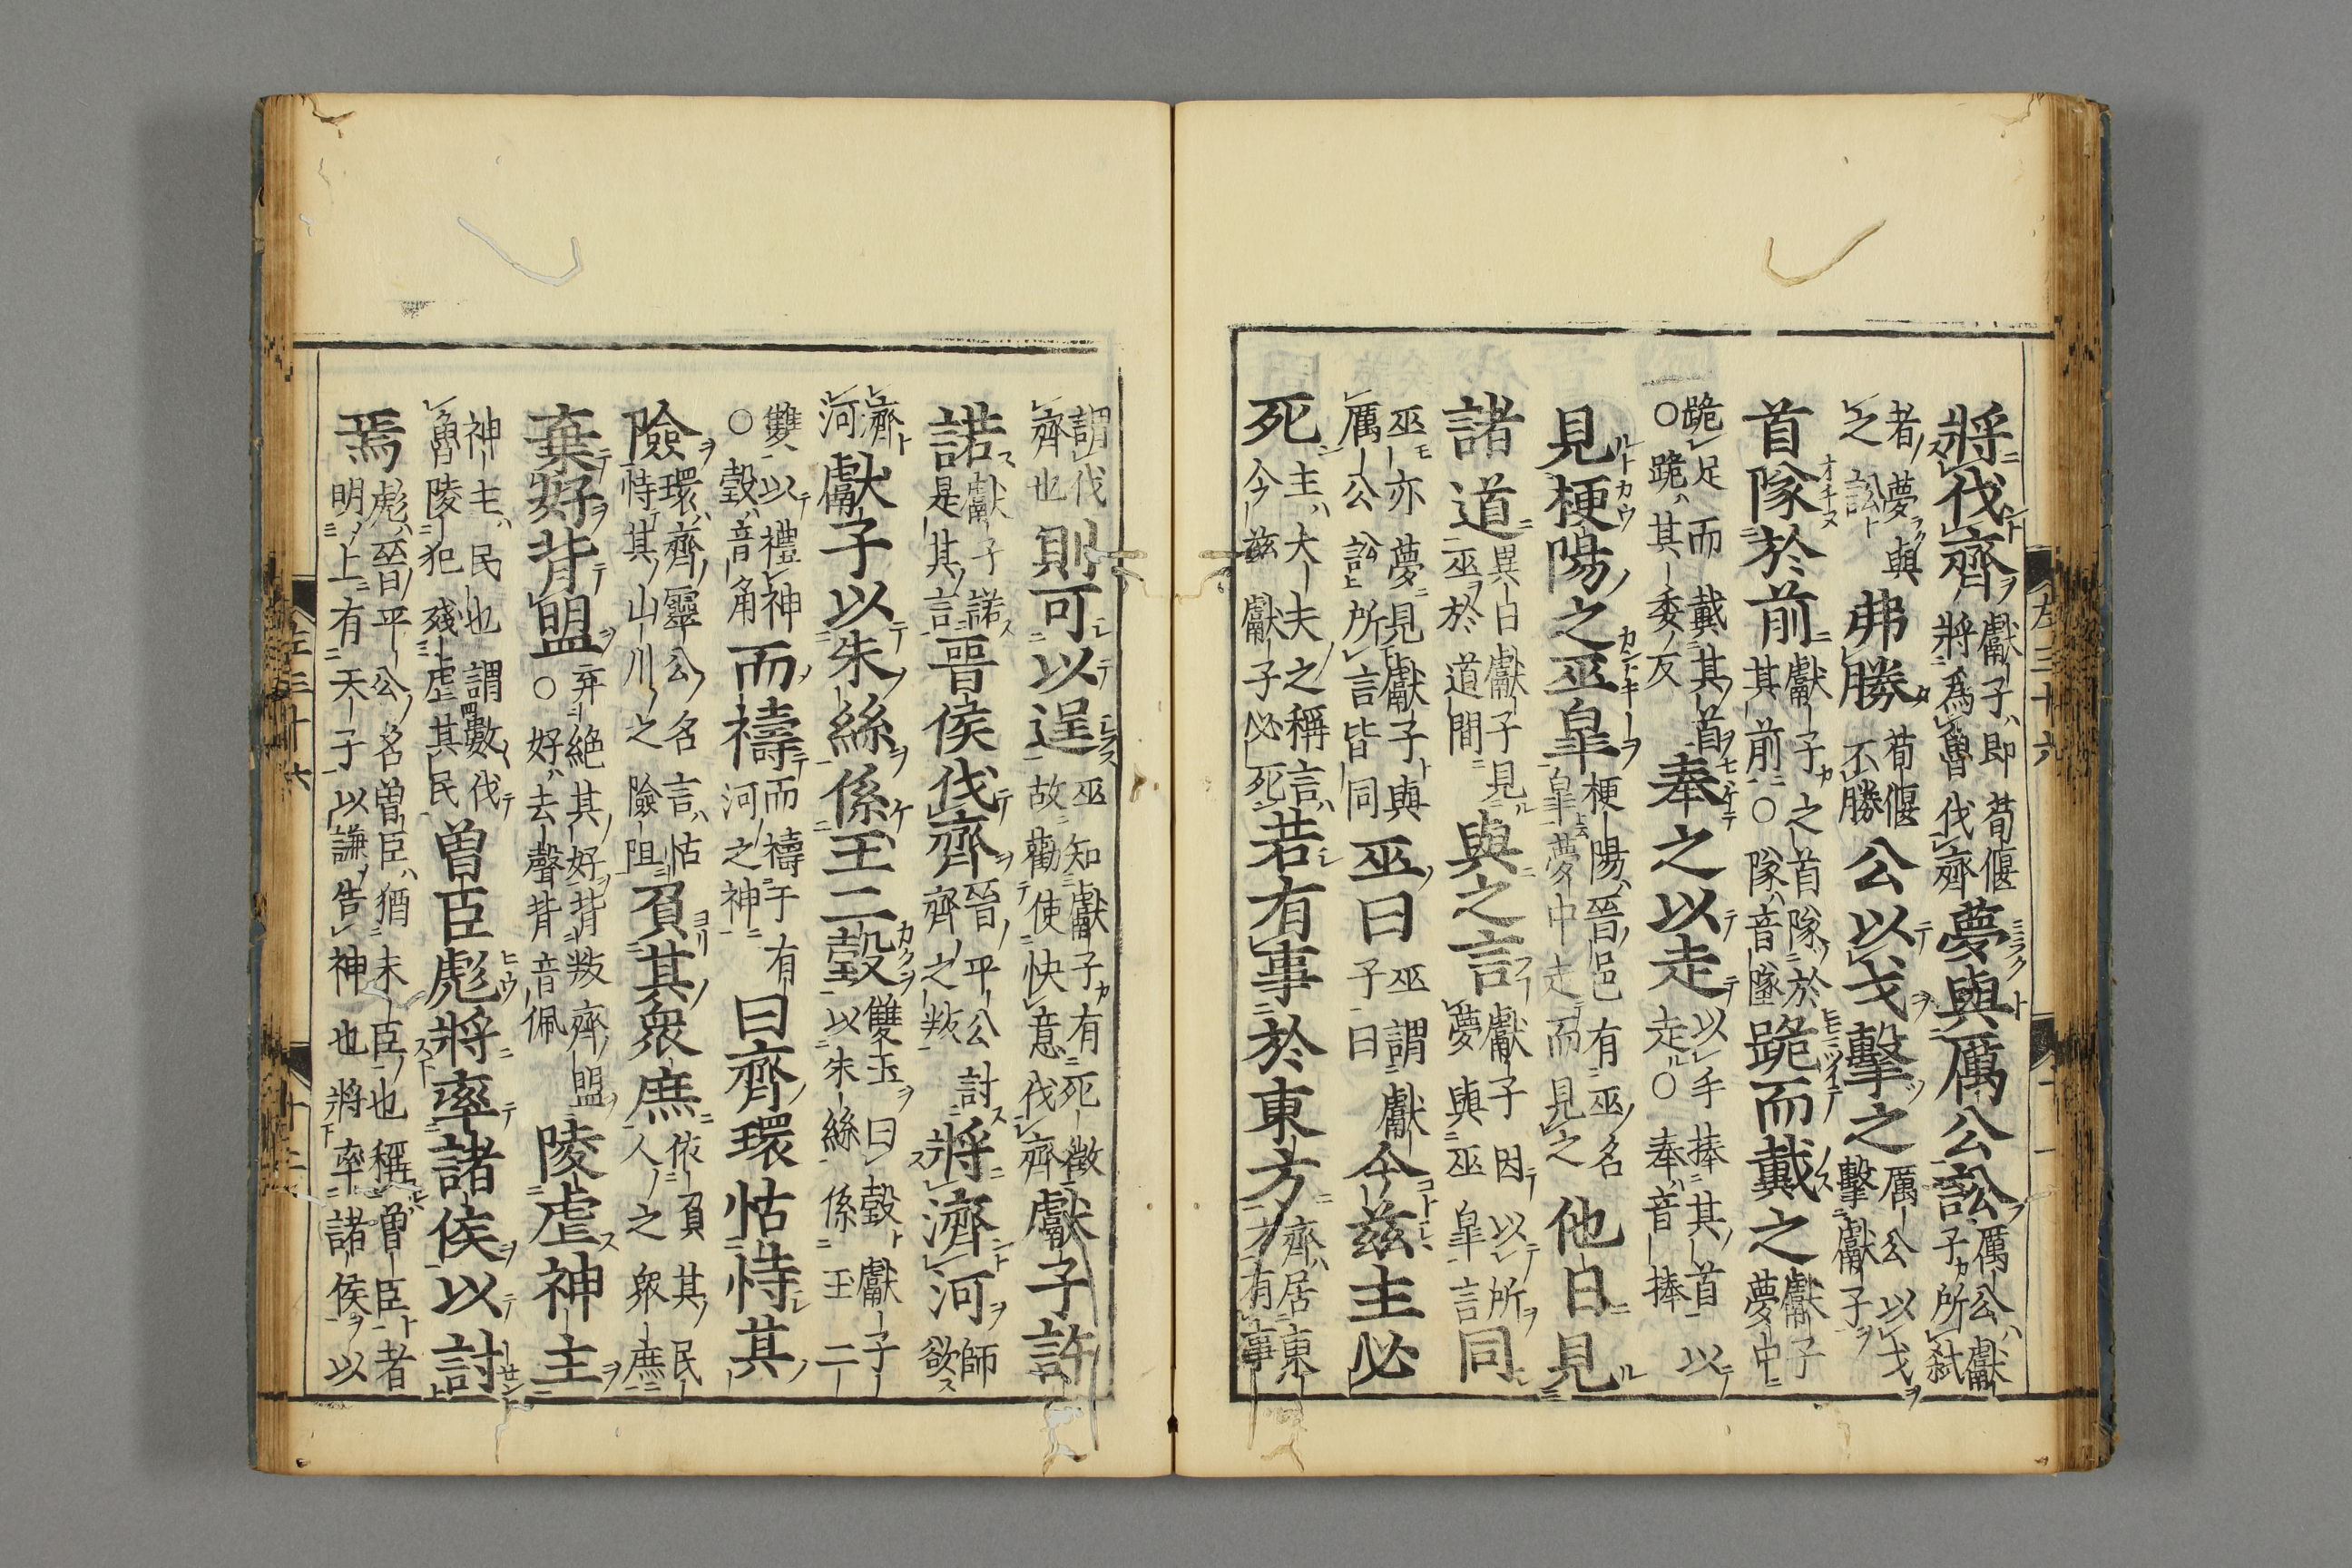 將伐齊獻子即荀偃將爲魯伐齊夢與厲公訟厲公獻子所弑
者夢與之訟弗勝荀偃不勝公以戈擊之厲公以戈擊獻子
首隊於前獻子之首隊於其前○隊音墜跪而戴之獻子夢中
跪足而戴其首○跪其委反奉之以走以手捧其首以走○奉音捧
見梗陽之巫皐梗陽晉邑有巫名皐夢中走而見之他日見
諸道異日獻子見巫於道間與之言獻子因以所夢與巫皐言同
巫亦夢見獻子與厲公訟所言皆同巫曰巫謂獻子曰今兹主必
死主大夫之稱言今兹獻子必死若有事於東方齊居東方有事
謂伐齊也則可以逞巫知獻子有死徵故勸使快意伐齊獻子許
諾獻子諾是其言晉侯伐齊晉平公討齊之叛將濟河師欲
濟河獻子以朱絲係玉二瑴雙玉曰瑴獻子以朱絲係玉二
雙以禮神○瑴音角而禱而禱于有河之神曰齊環怙恃其
險環齊靈公名言怙恃其山川之險阻負其衆庶依負其民人之衆庶
棄好背盟弃絶其好背叛齊盟○好去聲背音佩陵虐神主
神主民也謂數伐魯陵犯殘虐其民曽臣彪將率諸侯以討
焉彪晉平公名曽臣猶末臣也稱曽臣者明上有天子以謙告神也將率諸侯以
左三十六
十一
左三十六
十二